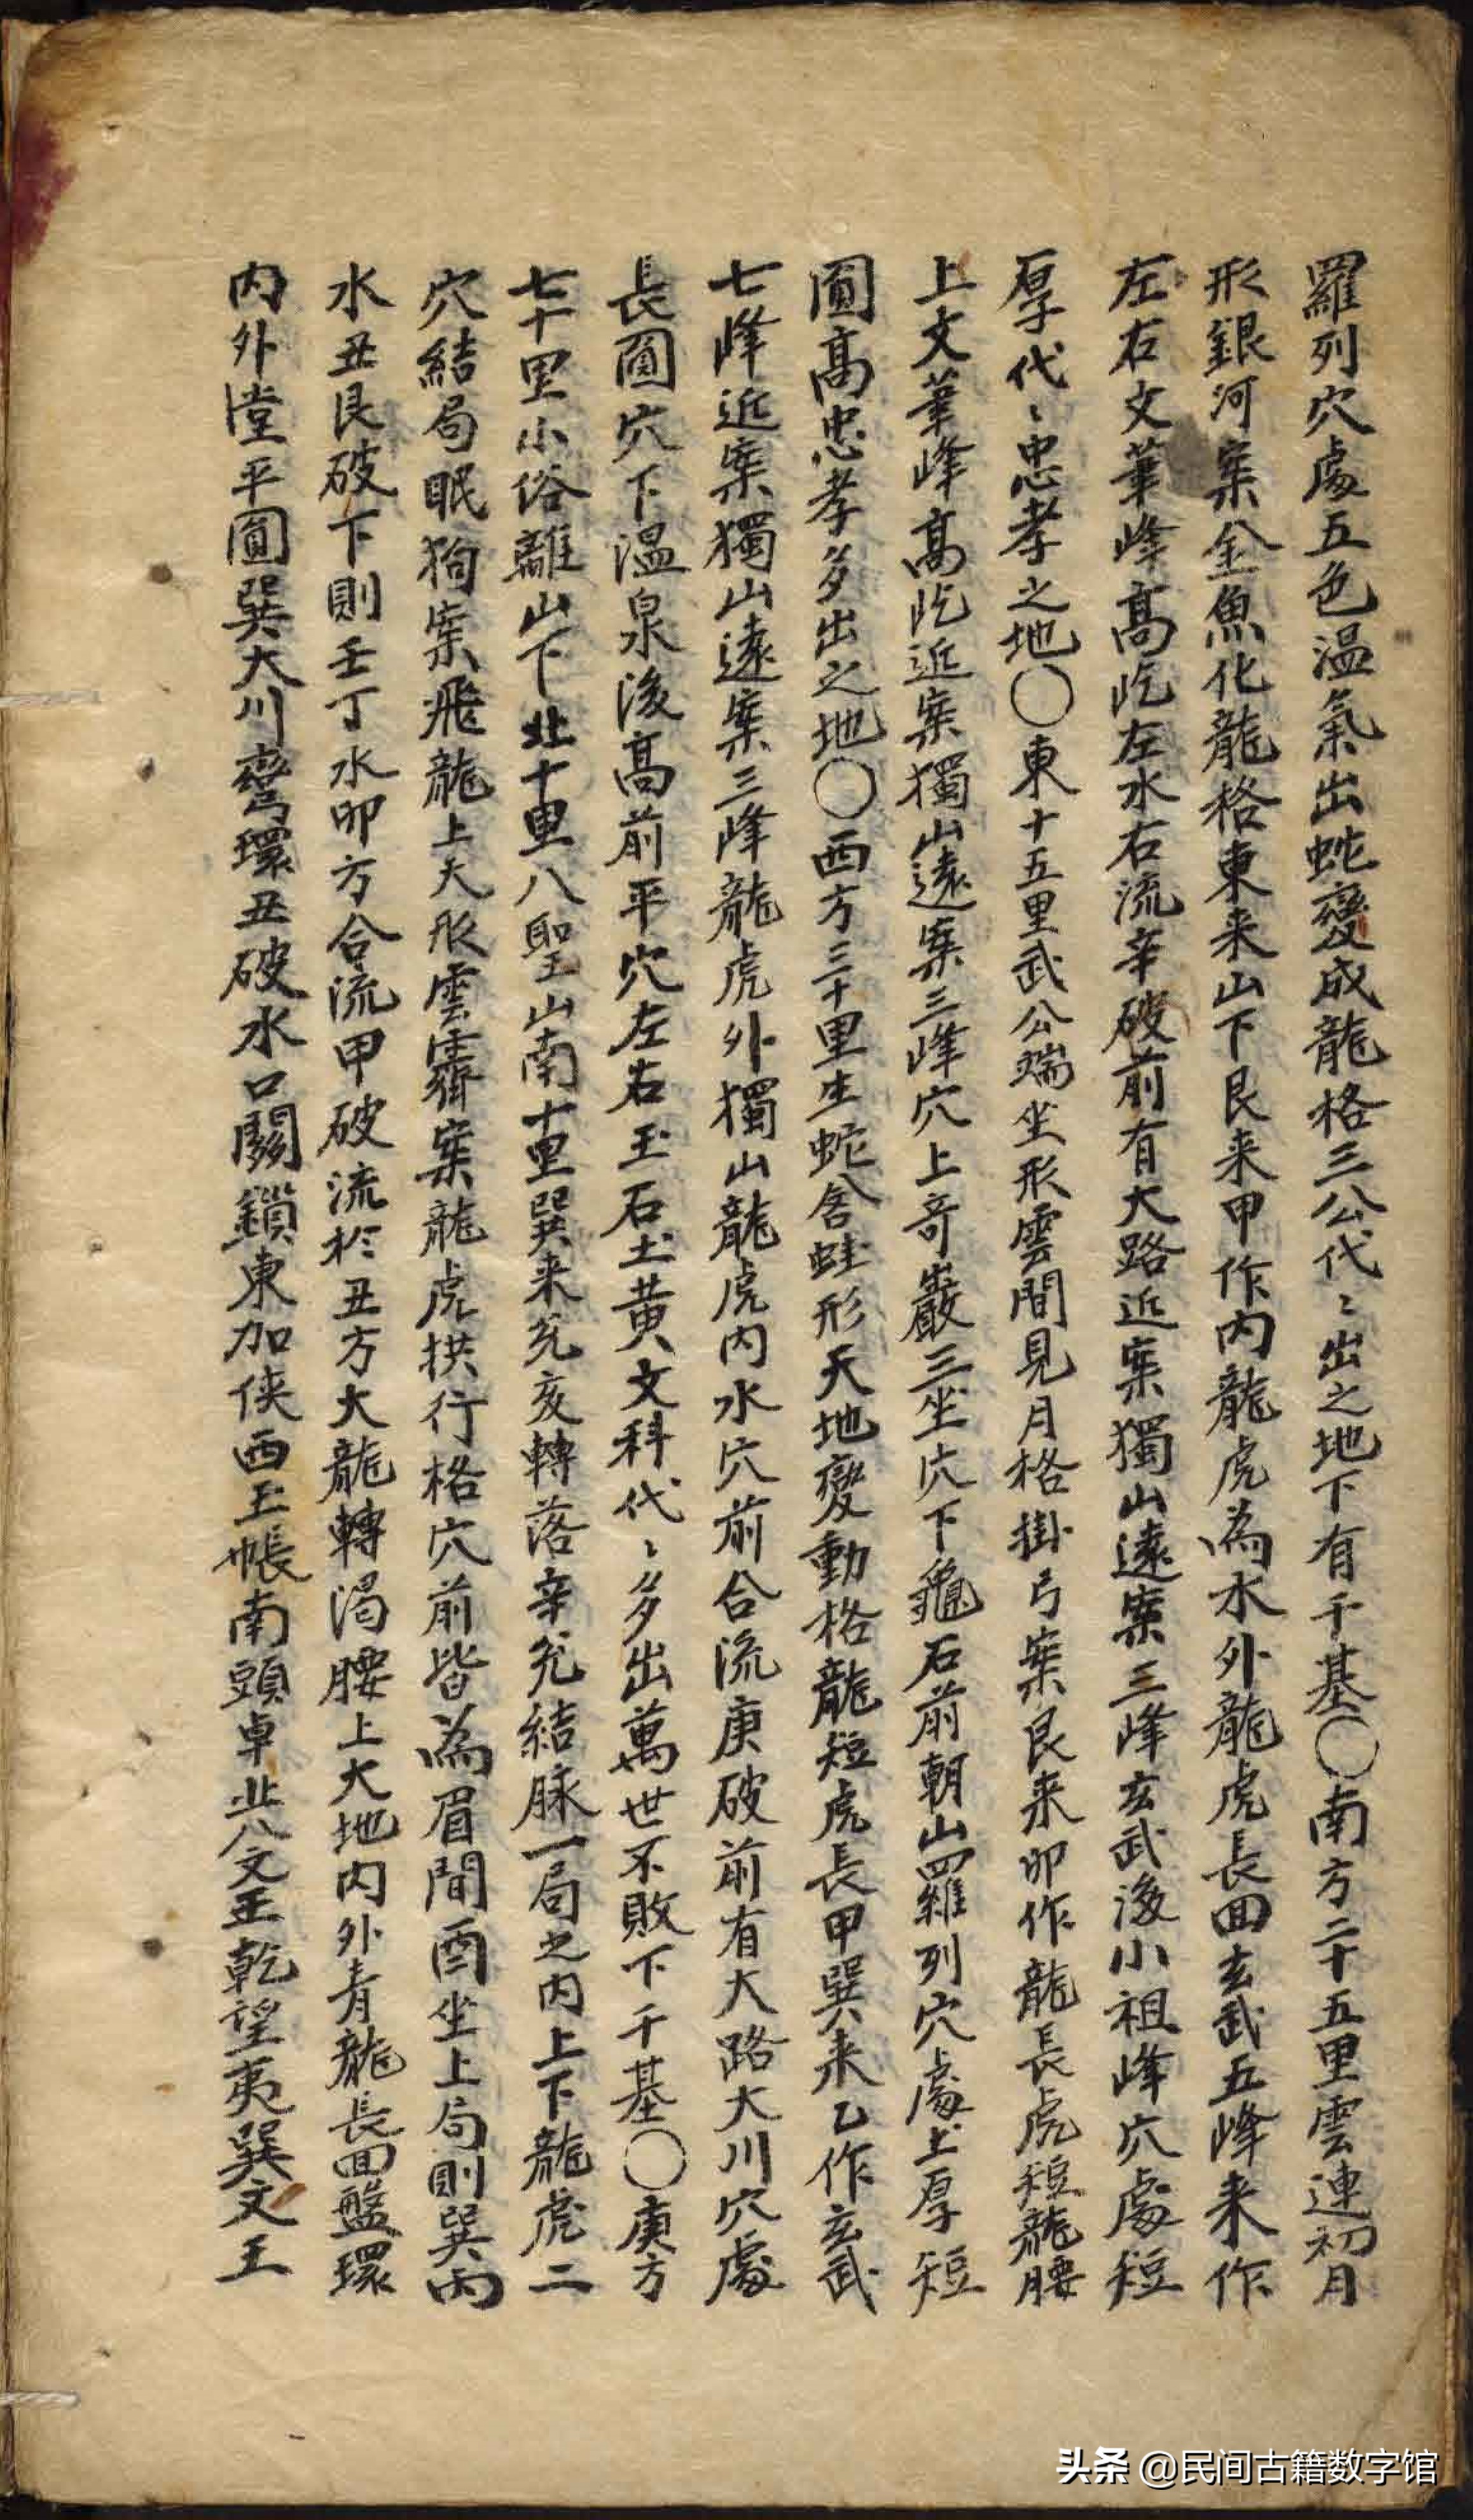 羅列穴處五色溫氣出蛇變成龍格三公代〻出之地下有千基〇南方二十五里雲連初月
形銀河案金魚化龍格東来山下艮来甲作内龍虎為水外龍虎長回玄武五峰来作
左右文筆峰高屹左水右流辛破前有大路近案獨山遠案三峰玄武後小祖峰穴處短
厚代〻忠孝之地〇東十五里武公端坐形雲間見月格掛弓案艮来卯作龍長虎短龍腰
上文筆峰高屹近案獨山遠案三峰穴上奇巖三坐穴下龜石前朝山羅列穴處上厚短
圓高忠孝多出之地〇西方三十里生蛇含蛙形天地變動格龍短虎長甲巽来乙作玄武
七峰近案獨山遠案三峰龍虎外獨山龍虎内水穴前合流庚破前有大路大川穴處
長圓穴下溫泉後高前平穴左右玉石土黄文科代〻多出萬世不敗下千基〇庚方
七十里小俗離山下北十里八聖山南十里巽来兌亥轉落辛兌結脉一局之内上下龍虎二
穴結局眠狗案飛龍上天形雲霽案龍虎拱行格穴前皆為眉間酉坐上局則巽丙
水丑艮破下則壬丁水卯方合流甲破流於丑方大龍轉渴腰上大地内外青龍長回盤環
内外堂平圓巽大川彎環丑破水口關鎖東加俠西玉帳南頭卓北八文王乾望夷巽文王
头条 @民间古籍数字馆